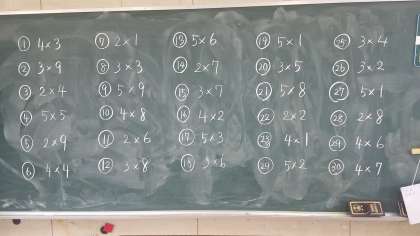 ① 4×3
② 3×9
③ 2×4
④ 5×5
⑤ 2×9
⑥ 4×4
⑦ 2×1
⑧ 3×3
⑨ 5×9
⑩ 4×8
⑪ 2×6
⑫ 3×8
⑬ 5×6
⑭ 2×7
⑮ 3×7
⑯ 4×2
⑰ 5×3
⑱ 3×6
⑲ 5×1
⑳ 3×5
㉑ 5×8
㉒ 2×2
㉓ 4×1
㉔ 5×2
㉕ 3×4
㉖ 3×2
㉗ 5×1
㉘ 2×8
㉙ 4×6
㉚ 4×7